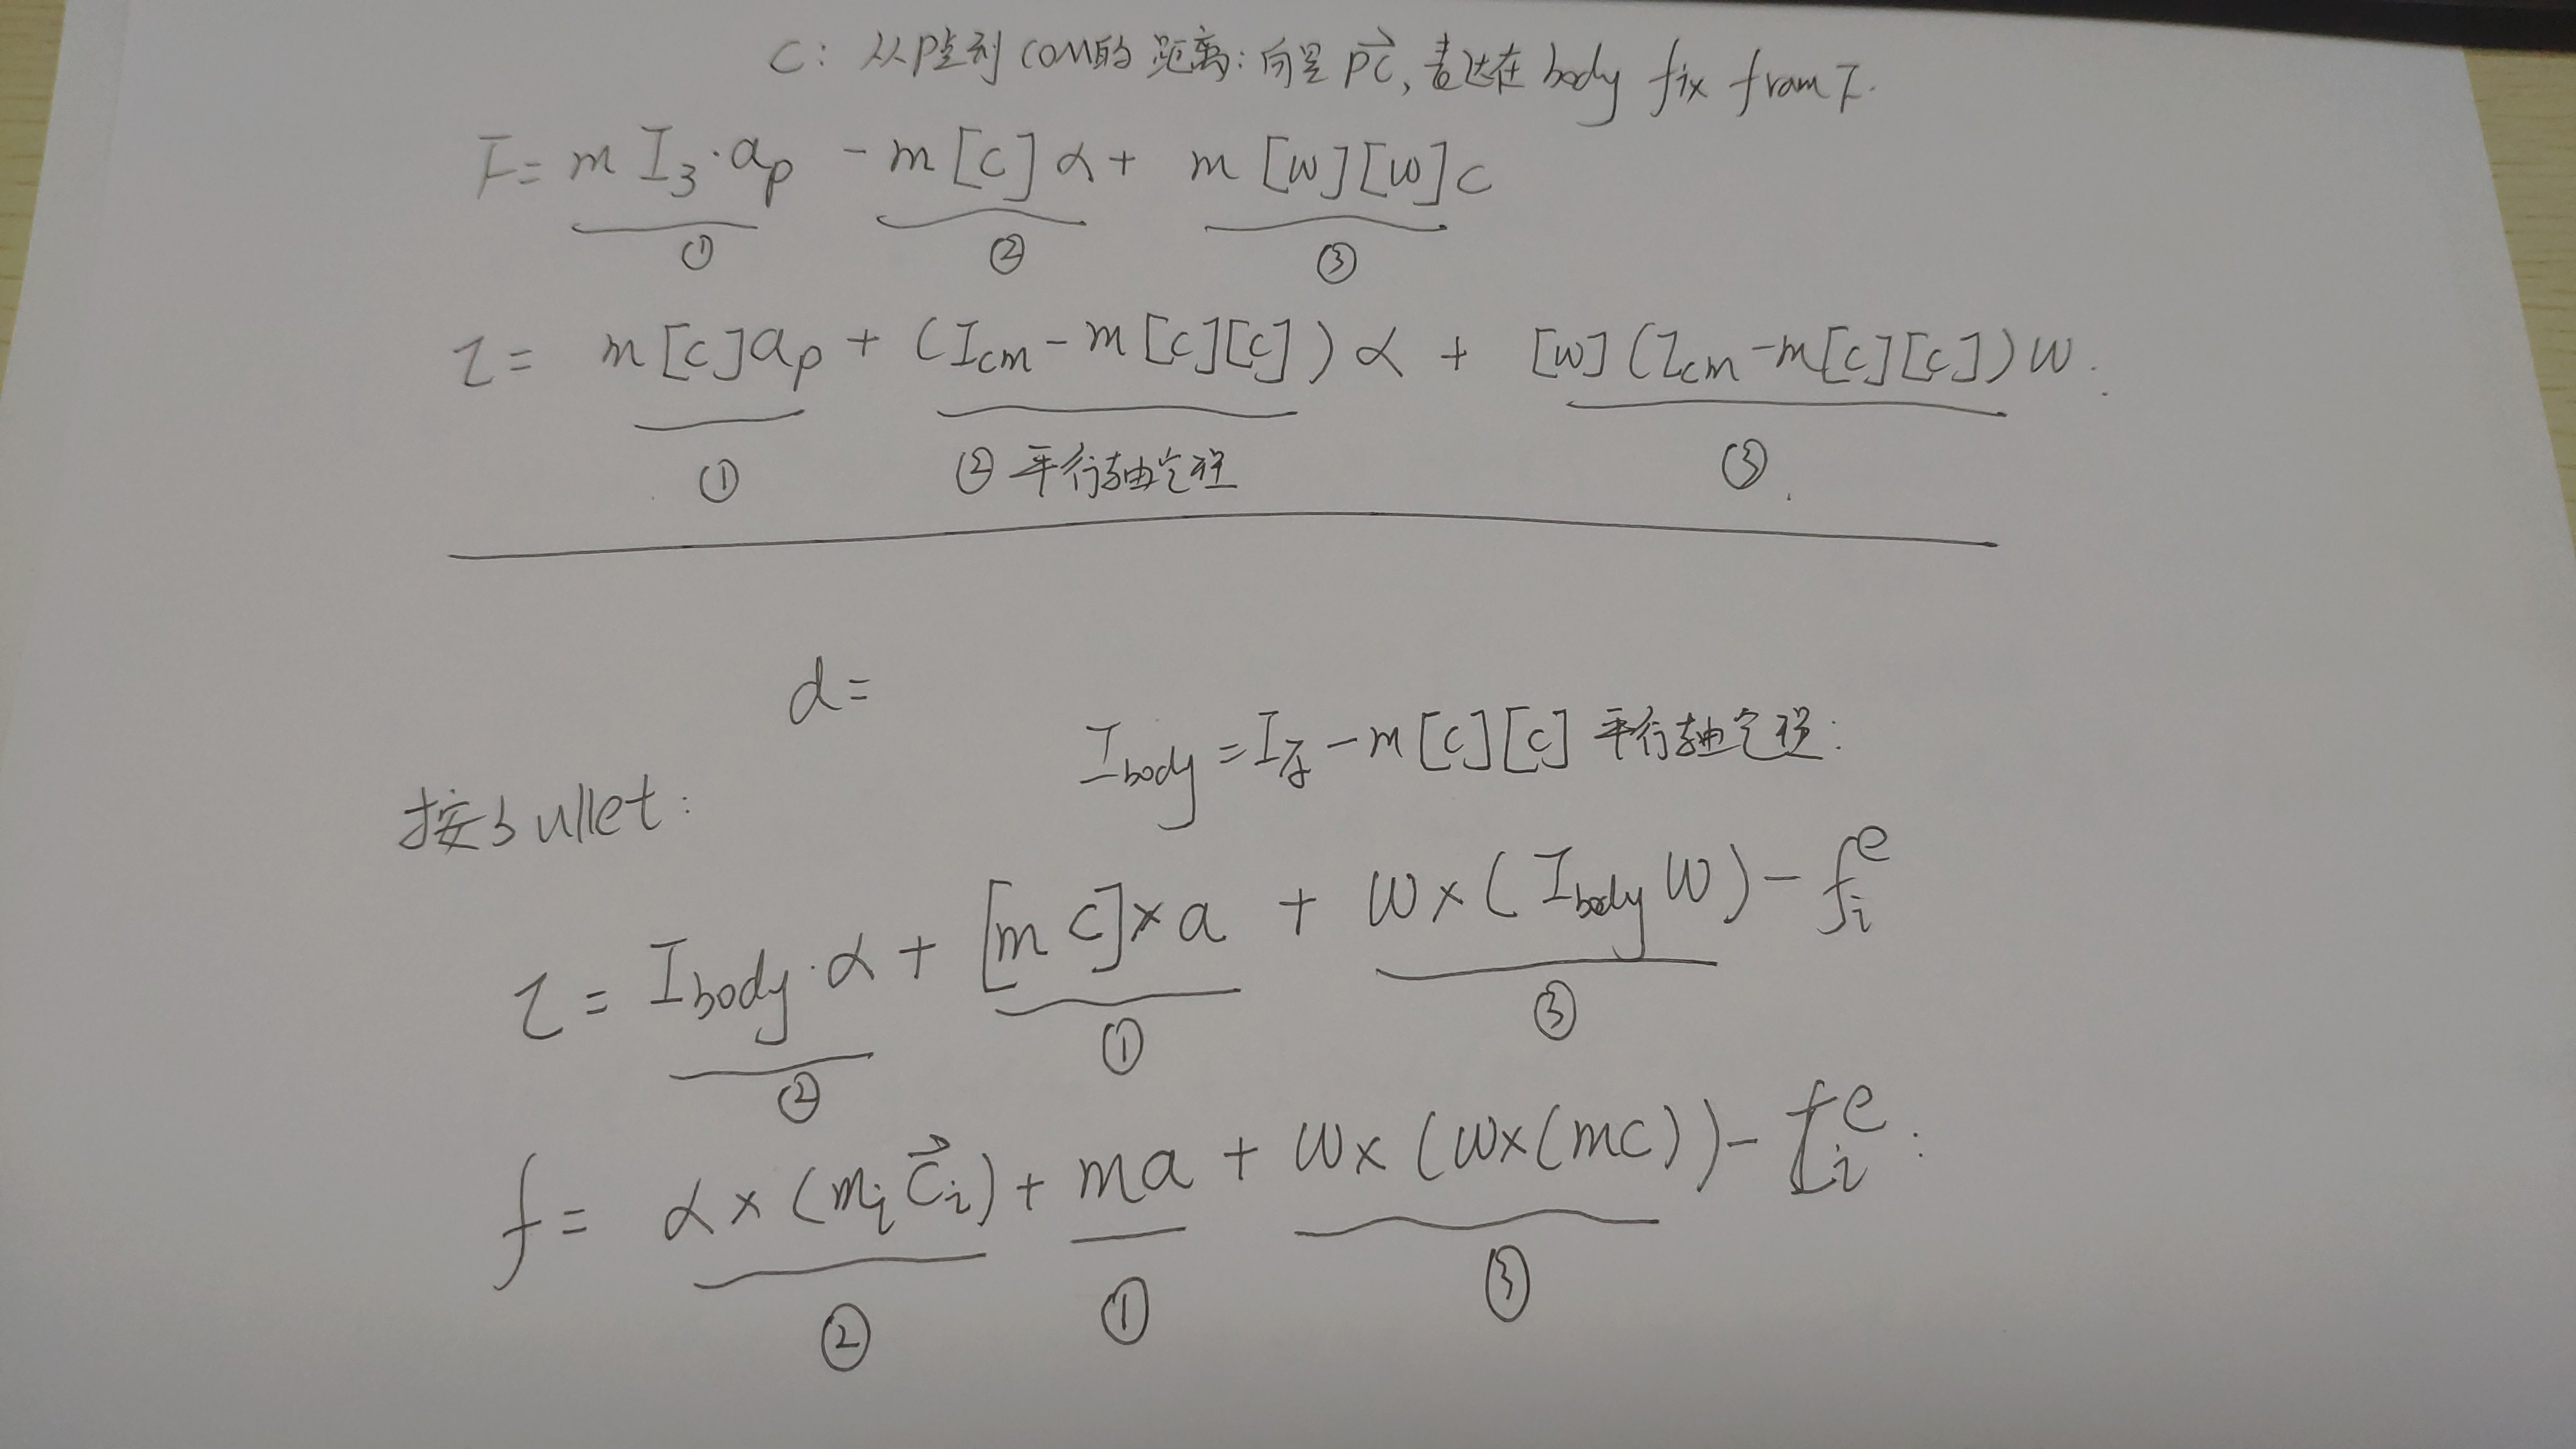 C: 从P点到 com的距离: 向量 P⃗C, 表达在 body fix framt.
F = m I₃·aₚ - m[c]α + m[w][w]c
① ② ③
τ = m[c]aₚ + (Icm - m[c][c])α + [w](Icm - m[c][c])w.
① ② 平行轴定理 ③.
d =
I_body = I - m[c][c] 平行轴定理:
按bullet:
τ = I_body·α + [mc]×a + w×(I_body w) - fᵢᵉ
② ① ③
f = α×(mᵢc⃗ᵢ) + ma + w×(w×(mc)) - fᵢᵉ:
② ① ③